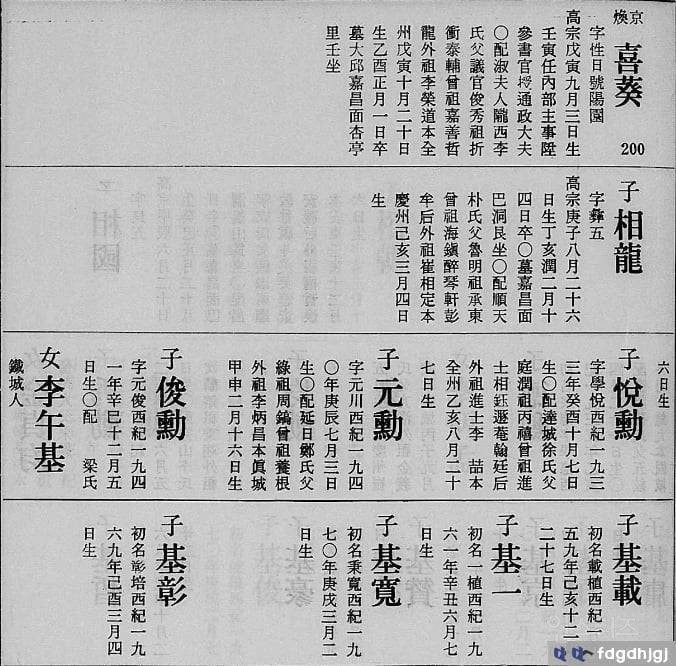 京
煥
喜葵
200
字性日號陽園
高宗戊寅九月三日生
壬寅任內部主事陞
參書官授通政大夫
〇配淑夫人隴西李
氏父議官俊秀祖折
衝泰輔曾祖嘉善哲
龍外祖李榮道本全
州戊寅十月二十日
生乙酉正月一日卒
墓大邱嘉昌面杏亭
里壬坐
子
相龍
字彝五
高宗庚子八月二十六
日生丁亥潤二月十
四日卒〇墓嘉昌面
巴洞艮坐〇配順天
朴氏父魯明祖承東
曾祖海鎭醉琴軒彭
年后外祖崔相定本
慶州己亥三月四日
生
六日生
子
悅勳
字學悅西紀一九三
三年癸酉十月七日
生〇配達城徐氏父
庭潤祖丙禧曾祖進
士相鈺遯菴翰廷后
外祖進士李 喆本
全州乙亥八月三十
七日生
子
元勳
字元川西紀一九四
〇年庚辰七月三日
生〇配延日鄭氏父
綠祖周鎬曾祖養根
外祖李炳昌本眞城
甲申二月十六日生
子
俊勳
字元俊西紀一九四
一年辛巳十二月五
日生〇配 梁氏
女
李午基
鐵城人
子
基載
初名載植西紀一九
五九年己亥十二月
二十七日生
子
基一
初名一植西紀一九
六一年辛丑六月七
日生
子
基寬
初名秉寬西紀一九
七〇年庚戌三月二
日生
子
基彰
初名彰培西紀一九
六九年己酉三月四
日生
fdgdhjgj